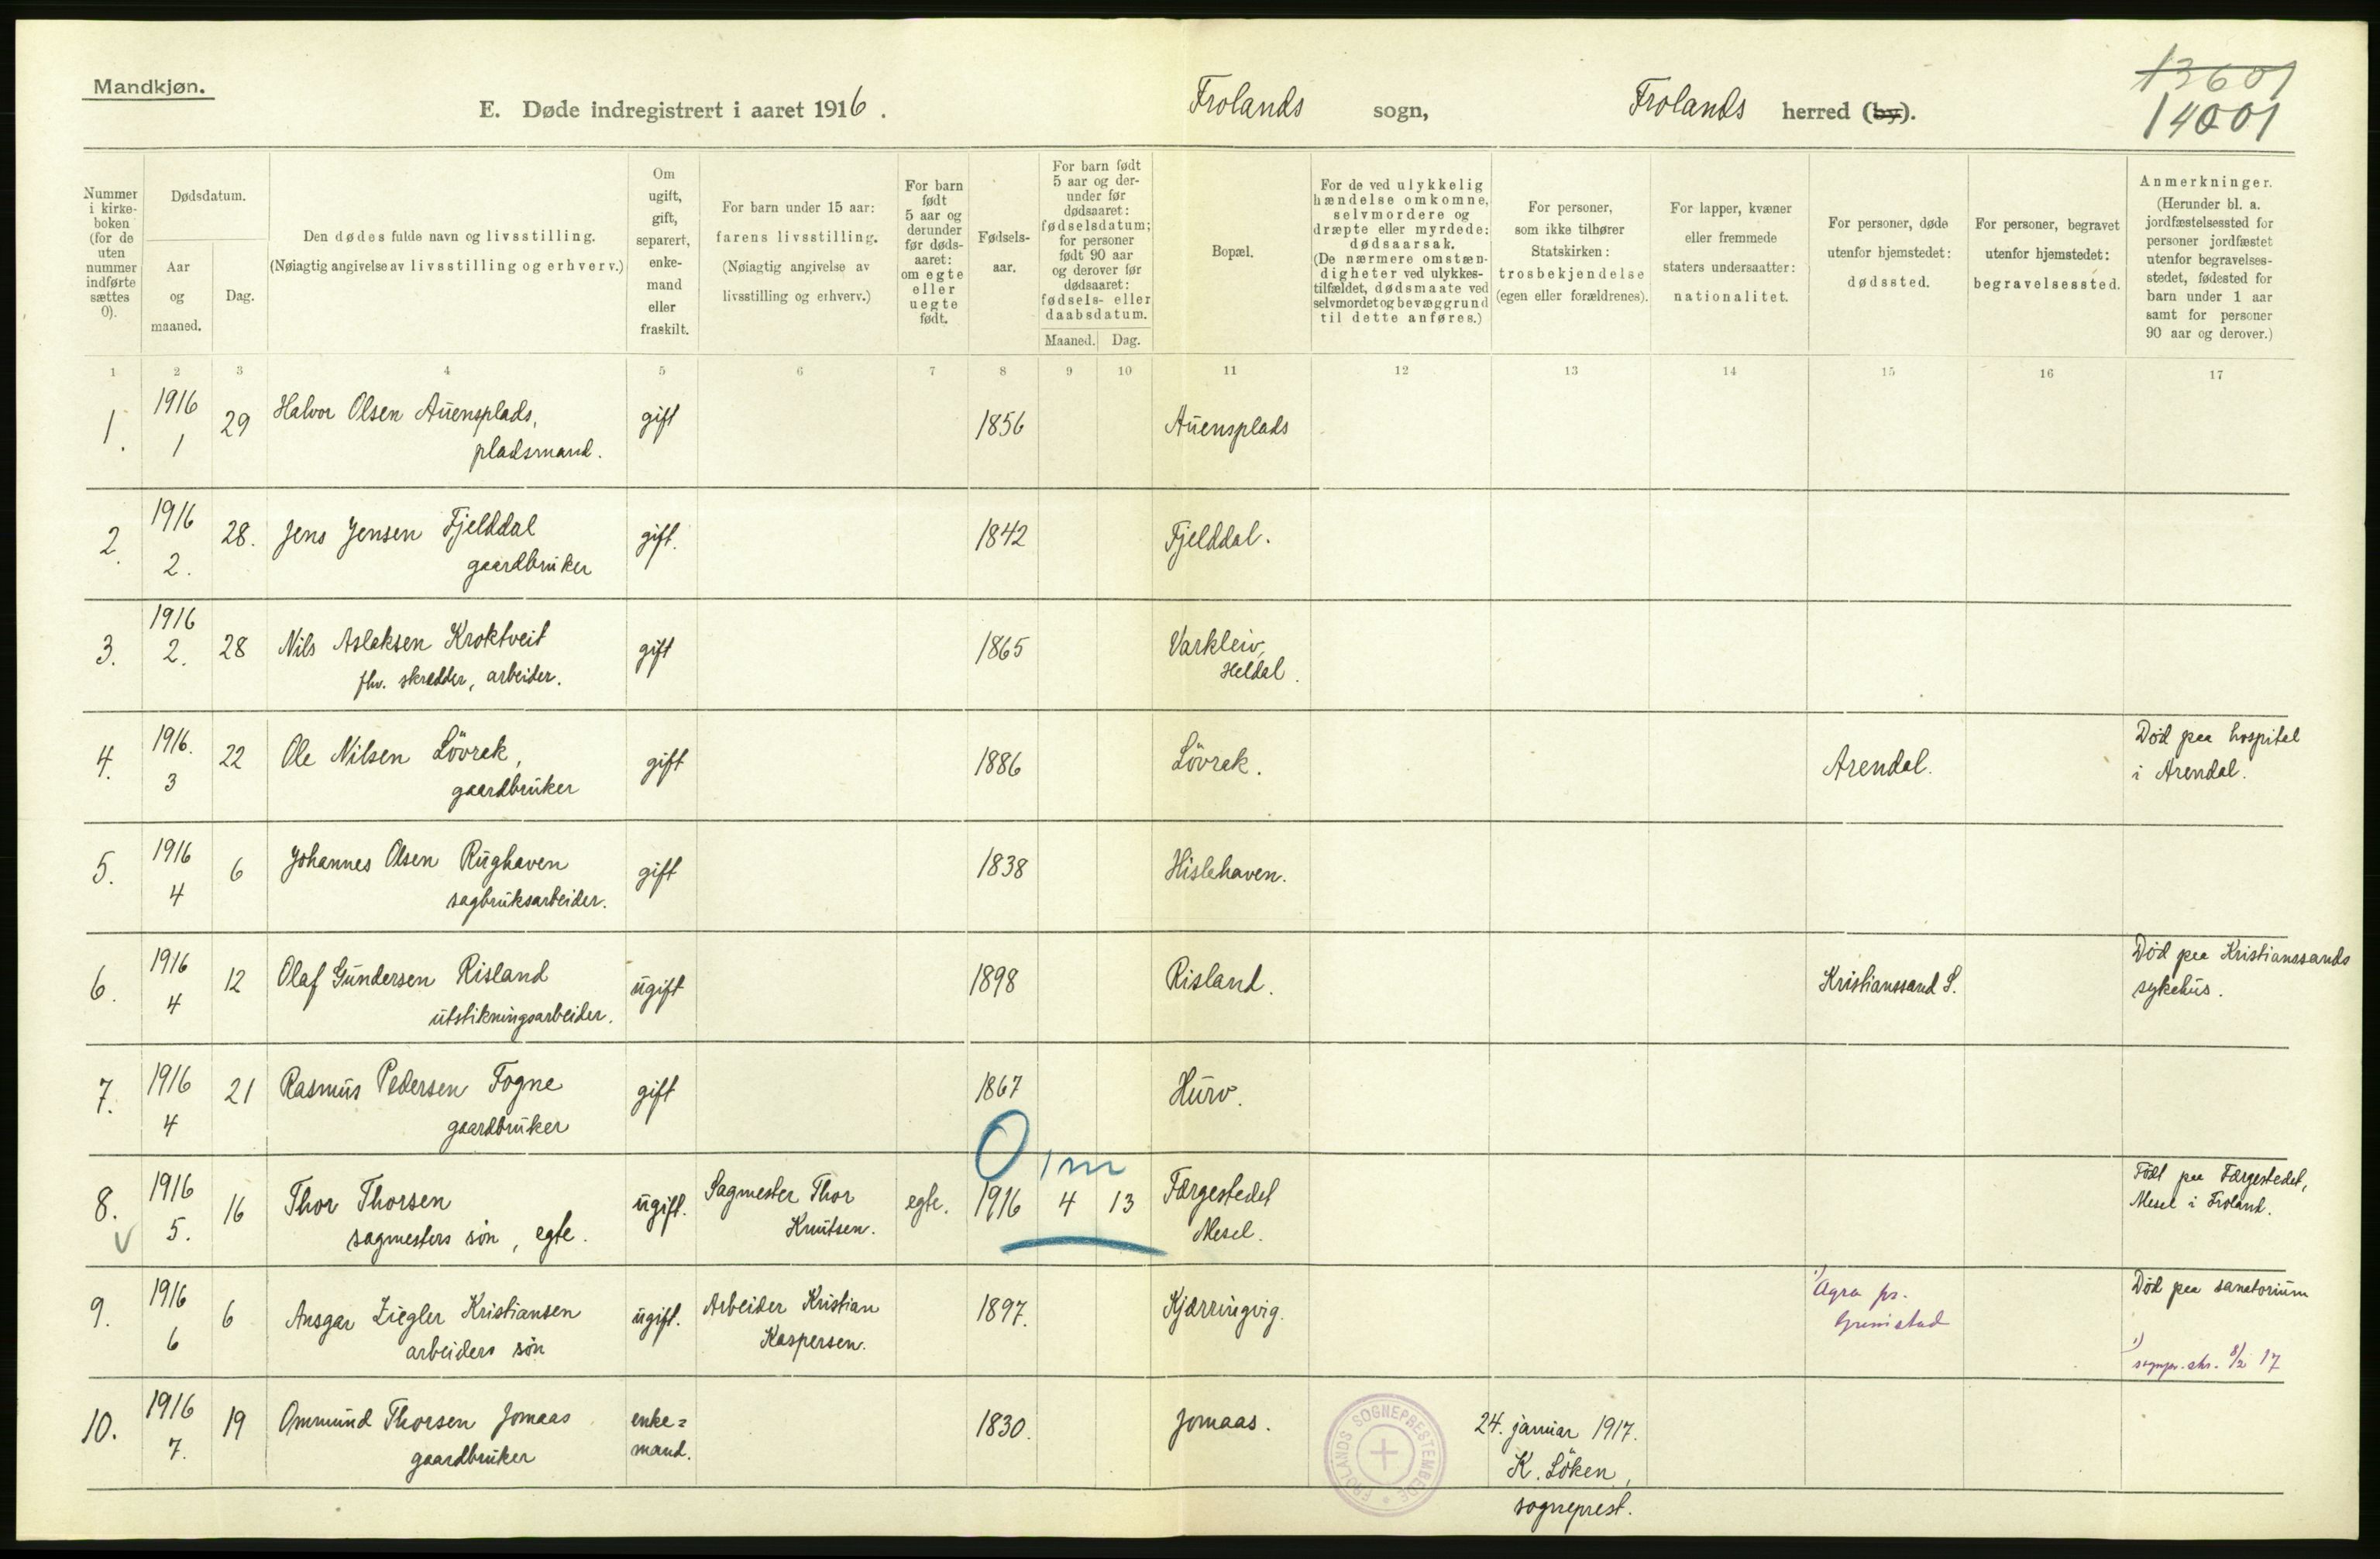 Mandkjøn.
E. Døde indregistrert i aaret 1916.
Frolands sogn,
Frolands herred (by).
13601
14001
Nummer i kirke-boken (for de uten nummer indførte sættes 0).
Dødsdatum.
Aar og maaned.
Dag.
Den dødes fulde navn og livsstilling.
(Nøiagtig angivelse av livsstilling og erhverv.)
Om ugift, gift, separert, enke-mand eller fraskilt.
For barn under 15 aar:
farens livsstilling.
(Nøiagtig angivelse av livsstilling og erhverv.)
For barn født 5 aar og derunder før døds-aaret: om egte eller uegte født.
Fødsels-aar.
For barn født 5 aar og der-under før dødsaaret: fødselsdatum; for personer født 90 aar og derover før dødsaaret: fødsels- eller daabsdatum.
Maaned. Dag.
Bopæl.
For de ved ulykkelig hændelse omkomne, selvmordere og dræpte eller myrdede: dødsaarsak.
(De nærmere omstæn-digheter ved ulykkes-tilfældet, dødsmaate ved selvmordet og bevæggrund til dette anføres.)
For personer, som ikke tilhører Statskirken: trosbekjendelse (egen eller forældrenes).
For lapper, kvæner eller fremmede staters undersaatter: nationalitet.
For personer, døde utenfor hjemstedet: dødssted.
For personer, begravet utenfor hjemstedet: begravelsessted.
Anmerkninger.
(Herunder bl. a. jordfæstelsessted for personer jordfæstet utenfor begravelses-stedet, fødested for barn under 1 aar samt for personer 90 aar og derover.)
1 2 3 4 5 6 7 8 9 10 11 12 13 14 15 16 17
1. 1916 1 29 Halvor Olsen Auensplads, gift 1856 Auensplads
pladsmand.
2. 1916 2. 28. Jens Jensen Fjelddal gift. 1842 Fjelddal.
gaardbruker
3. 1916 2. 28 Nils Aslaksen Kroktveit gift 1865 Varkleiv,
fhv. skrædder, arbeider. Heldal.
4. 1916. 3 22 Ole Nilsen Lövrak, gift 1886 Lövrak. Arendal. Död paa hospital
gaardbruker i Arendal.
5. 1916 4 6 Johannes Olsen Rughaven gift 1838 Hislehaven.
sagbruksarbeider.
6. 1916 4 12 Olaf Gundersen Risland ugift 1898 Risland. Kristianssand S. Död paa Kristianssands
utstikningsarbeider. sykehus.
7. 1916 4 21 Rasmus Pedersen Fogne gift 1867 Hurv.
gaardbruker
0 1 m
8. 1916 5. 16 Thor Thorsen ugift. Sagmester Thor egte. 1916 4 13 Færgestedet Födt paa Færgestedet,
sagmesters sön, egte. Knutsen. Mesel. Mesel i Froland.
9. 1916 6 6 Ansgar Ziegler Kristiansen ugift. Arbeider Kristian 1897. Kjærringvig. 1) Agra pr. Död paa sanatorium
arbeiders sön Kaspersen. Grimstad
1) sognpr. skr. 8/2 17
10. 1916 7. 19 Ommund Thorsen Jomaas enke= 1830. Jomaas.
gaardbruker mand.
FROLANDS SOGNEPRESTEMBEDE
24. januar 1917.
K. Löken,
sogneprest.